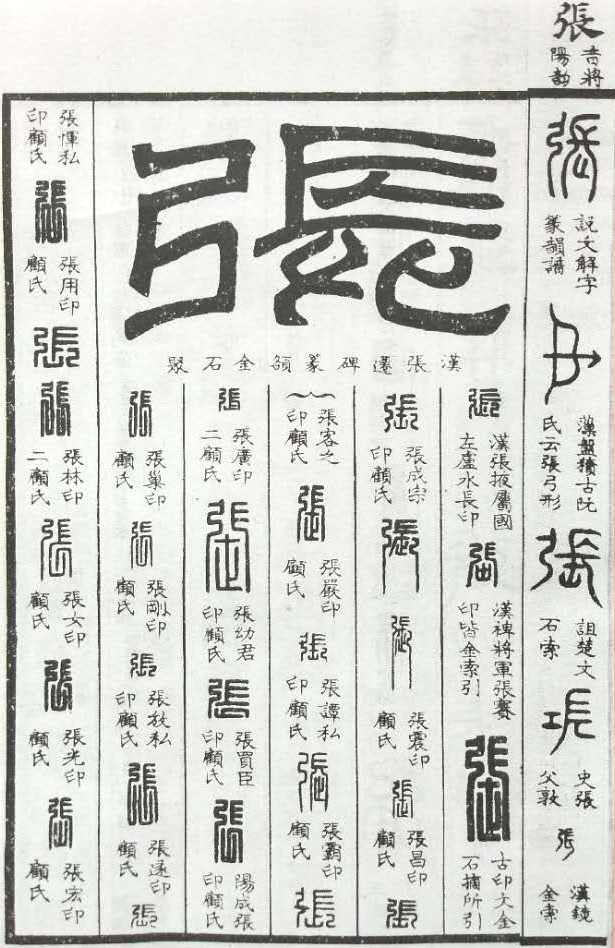 張
音將
陽韵
張
說文解字
篆韻譜
張
詛楚文
石索
張
史張
父敦
張
漢鏡
金索
張
漢張遷碑篆額金石聚
張
漢張掖屬國
左盧水長印
張
漢裨將軍張賽
印皆金索引
張
古印文金
石摘所引
張
張成宗
印顧氏
張
張
張震印
顧氏
張
張昌印
顧氏
張
張客之
印顧氏
張
張嚴印
顧氏
張
張譚私
印顧氏
張
張霸印
顧氏
張
張
張廣印
二顧氏
張
張幼君
印顧氏
張
張買臣
印顧氏
張
陽成張
印顧氏
張
張巢印
顧氏
張
張剛印
顧氏
張
張放私
印顧氏
張
張遂印
顧氏
張
張惲私
印顧氏
張
張用印
顧氏
張
張
張林印
二顧氏
張
張女印
顧氏
張
張光印
顧氏
張
張宏印
顧氏